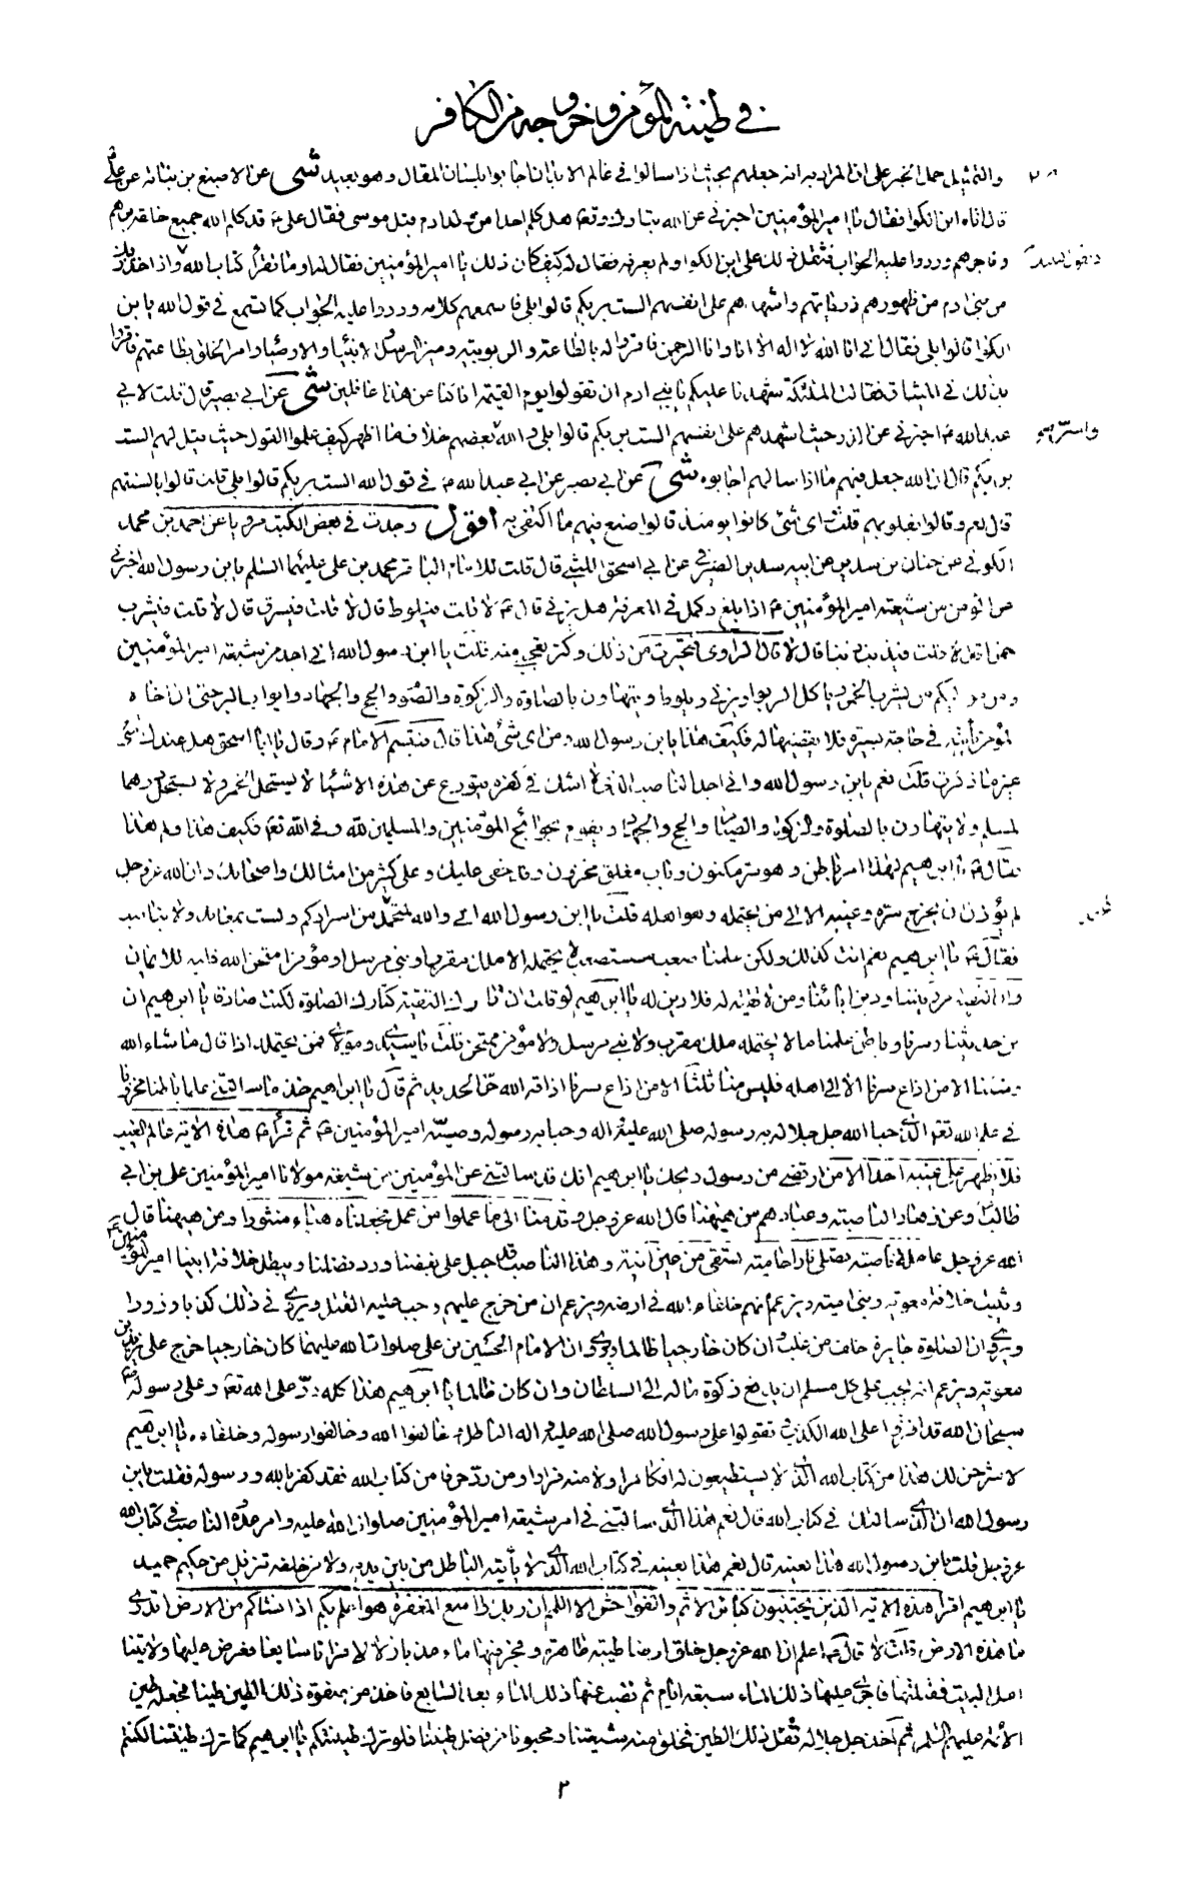 في طينة المؤمن وخروجه من الكافر
والتمثيل حمل الخبر على ان المراد به انه جعلهم بحيث اذا سالوا في عالم الابدان اجابوا بلسان المقال وهو بعيد شى عن الاصبغ بن نباتة عن علي
قال اتاه ابن الكوا فقال يا امير المؤمنين اخبرني عن الله تبارك وتعالى هل كلم احدا من ولد ادم قبل موسى فقال علي قد كلم الله جميع خلقه برهم
وفاجرهم وردوا عليه الجواب فثقل ذلك على ابن الكوا ولم يعرفه فقال له كيف كان ذلك يا امير المؤمنين فقال له او ما تقرأ كتاب الله واذ اخذ ربك
من بني ادم من ظهورهم ذرياتهم واشهدهم على انفسهم الست بربكم قالوا بلى فاسمعهم كلامه وردوا عليه الجواب كما تسمع في قول الله يا بن
الكوا قالوا بلى فقال اني انا الله لا اله الا انا وانا الرحمن فاقروا له بالطاعة والربوبية وميز الرسل والانبياء والاوصياء وامر الخلق بطاعتهم فاقروا
بذلك في الميثاق فقالت الملئكة شهدنا عليكم يا بني ادم ان تقولوا يوم القيمة انا كنا عن هذا غافلين شى عن ابي بصير قال قلت لابي
عبد الله ع اخبرني عن الذر حيث اشهدهم على انفسهم الست بربكم قالوا بلى واسر بعضهم خلاف ما اظهر كيف علموا القول حيث قيل لهم الست
بربكم قال ان الله جعل فيهم ما اذا سالهم اجابوه شى عن ابي بصير عن ابي عبد الله ع في قول الله الست بربكم قالوا بلى قلت قالوا بالسنتهم
قال نعم وقالوا بقلوبهم قلت اى شئ كانوا يومئذ قالوا صنع فيهم ما اكتفى به اقول وجدت في بعض الكتب مرويا عن احمد بن محمد
الكوفي عن حنان بن سدير عن ابيه سدير الصيرفي عن ابي اسحق الليثي قال قلت للامام الباقر محمد بن علي عليهما السلم يا بن رسول الله اخبرني
عن المؤمن من شيعة امير المؤمنين ع اذا بلغ وكمل في المعرفة هل يزني قال ع لا قلت فيلوط قال لا قلت فيسرق قال لا قلت فيشرب
خمرا قال لا قلت فيذنب ذنبا قال لا قال الراوى فتحيرت من ذلك وكثر تعجبي منه قلت يا ابن رسول الله اني اجد من شيعة امير المؤمنين
ومن مواليكم من يشرب الخمر وياكل الربوا ويزني ويلوط ويتهاون بالصلوة والزكوة والصوم والحج والجهاد وابواب البر حتى ان اخاه
المؤمن يأتيه في حاجة يسيرة فلا يقضيها له فكيف هذا يا بن رسول الله ومن اى شئ هذا قال فتبسم الامام ع وقال يا ابا اسحق هل عندك شئ
غير ما ذكرت قلت نعم يا بن رسول الله واني اجد الناصب الذى لا اشك في كفره يتورع عن هذه الاشياء لا يستحل الخمر ولا يستحل درهما
لمسلم ولا يتهاون بالصلوة والزكوة والصيام والحج والجهاد ويقوم بحوائج المؤمنين والمسلمين لله وفي الله تعالى فكيف هذا ولم هذا
فقال ع يا ابراهيم لهذا امر باطن وهو سر مكنون وباب مغلق مخزون وقد خفي عليك وعلى كثير من امثالك واصحابك وان الله عز وجل
لم يؤذن ان يخرج سره وغيبه الا الى من يحتمله وهو اهله قلت يا ابن رسول الله اني والله لمحتمل من اسراركم ولست بمعاند ولا بناصب
فقال ع يا ابراهيم نعم انت كذلك ولكن علمنا صعب مستصعب لا يحتمله الا ملك مقرب او نبي مرسل او مؤمن امتحن الله قلبه للايمان
وان التقية من ديننا ودين ابائنا ومن لا تقية له فلا دين له يا ابراهيم لو قلت ان تارك التقية كتارك الصلوة لكنت صادقا يا ابراهيم ان
من حديثنا وسرنا وباطن علمنا ما لا يحتمله ملك مقرب ولا نبي مرسل ولا مؤمن ممتحن قلت يا سيدي ومولاي فمن يحتمله اذا قال ما شاء الله
وشئنا الا من اذاع سرنا الا الى اهله فليس منا ثلثا الا من اذاع سرنا اذاقه الله حر الحديد ثم قال يا ابراهيم خذ ما سالتني علما باطنا مخزونا
في علم الله تعالى الذي حبا الله جل جلاله به رسوله صلى الله عليه واله وحبا به رسوله وصيه امير المؤمنين ع ثم قرأ ع هذه الاية عالم الغيب
فلا يظهر على غيبه احدا الا من ارتضى من رسول ويحك يا ابراهيم انك قد سالتني عن المؤمنين من شيعة مولانا امير المؤمنين علي بن ابي
طالب وعن زهاد الناصبة وعبادهم من هيهنا قال الله عز وجل وقدمنا الى ما عملوا من عمل فجعلناه هباء منثورا ومن هيهنا قال
الله عز وجل عاملة ناصبة تصلى نارا حامية تسقى من عين انية وهذا الناصب قد جبل على بغضنا ورد فضلنا ويبطل خلافة ابينا امير المؤمنين
ويثبت خلافة معوية وبني امية ويزعم انهم خلفاء الله في ارضه ويزعم ان من خرج عليهم وجب عليه القتل ويروي في ذلك كذبا وزورا
ويروي ان الصلوة جايزة خلف من غلب وان كان خارجيا ظالما ويروي ان الامام الحسين بن علي صلوات الله عليهما كان خارجيا خرج على يزيد بن
معوية ويزعم انه يجب على كل مسلم ان يدفع زكوة ماله الى السلطان وان كان ظالما يا ابراهيم هذا كله رد على الله تعالى وعلى رسوله
سبحان الله قد افتروا على الله الكذب وتقولوا على رسول الله صلى الله عليه واله الباطل وخالفوا الله وخالفوا رسوله وخلفاءه يا ابراهيم
لاشرحن لك هذا من كتاب الله الذي لا يستطيعون له انكارا ولا منه فرارا ومن رد حرفا من كتاب الله فقد كفر بالله ورسوله فقلت يا بن
رسول الله ان الذي سالتك في كتاب الله قال نعم هذا الذي سالتني في امر شيعة امير المؤمنين صلوات الله عليه وامر عدوه الناصب في كتاب الله
عز وجل قلت يا بن رسول الله هذا بعينه قال نعم هذا بعينه في كتاب الله الذي لا يأتيه الباطل من بين يديه ولا من خلفه تنزيل من حكيم حميد
يا ابراهيم اقرأ هذه الاية الذين يجتنبون كبائر الاثم والفواحش الا اللمم ان ربك واسع المغفرة هو اعلم بكم اذ انشاكم من الارض اتدري
ما هذه الارض قلت لا قال ع اعلم ان الله عز وجل خلق ارضا طيبة طاهرة وفجر فيها ماء عذبا زلالا فراتا سايغا فعرض عليها ولايتنا
اهل البيت فقبلتها فاجرى عليها ذلك الماء سبعة ايام ثم نضب عنها ذلك الماء بعد السابع فاخذ من صفوة ذلك الطين طينا فجعله طين
الائمة عليهم السلم ثم اخذ جل جلاله ثفل ذلك الطين فخلق منه شيعتنا ومحبونا من فضل طينتنا فلو ترك طينتكم يا ابراهيم كما ترك طينتنا لكنتم
٢